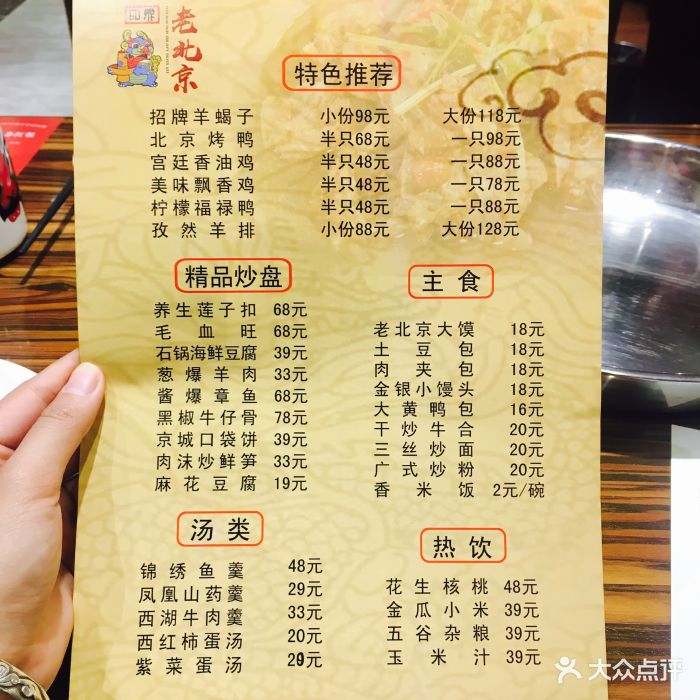 品鼎
老北京
特色推荐
招牌羊蝎子 小份98元 大份118元
北京烤鸭 半只68元 一只98元
宫廷香油鸡 半只48元 一只88元
美味飘香鸡 半只48元 一只78元
柠檬福禄鸭 半只48元 一只88元
孜然羊排 小份88元 大份128元
精品炒盘
养生莲子扣 68元
毛血旺 68元
石锅海鲜豆腐 39元
葱爆羊肉 33元
酱爆章鱼 68元
黑椒牛仔骨 78元
京城口袋饼 39元
肉沫炒鲜笋 33元
麻花豆腐 19元
主食
老北京大馍 18元
土豆包 18元
肉夹包 18元
金银小馒头 18元
大黄鸭包 16元
干炒牛合 20元
三丝炒面 20元
广式炒粉 20元
香米饭 2元/碗
汤类
锦绣鱼羹 48元
凤凰山药羹 29元
西湖牛肉羹 33元
西红柿蛋汤 20元
紫菜蛋汤 20元
热饮
花生核桃 48元
金瓜小米 39元
五谷杂粮 39元
玉米汁 39元
大众点评